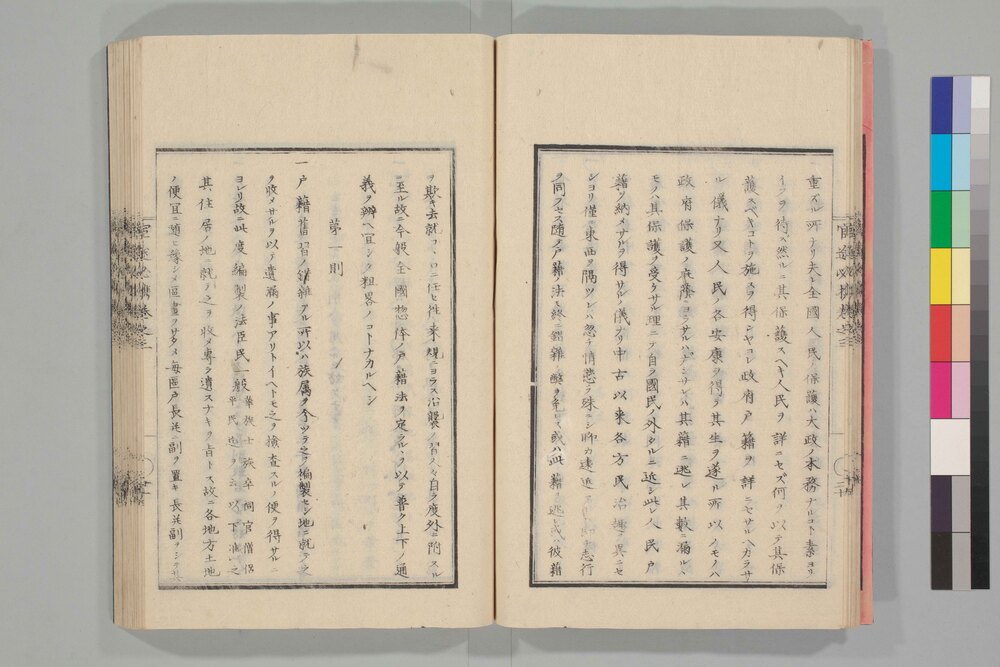 重スル所ナリ夫レ全國人民ノ保護ハ大政ノ本務ナルコト素ヨリ
イフヲ待タス然ルニ其保護スヘキ人民ヲ詳ニセズ何ヲ以テ其保
護スヘキコトヲ施スヲ得ンヤコレ政府戸籍ヲ詳ニセサルヘカラサ
ル儀ナリ又人民ノ各安康ヲ得テ其生ヲ遂ル所以ノモノハ
政府保護ノ庇蔭ニヨラサルハナシサレハ其籍ニ逃レ其數ニ漏ルヽ
モノハ其保護ヲ受ケサル理ニテ自ラ國民ノ外タルニ近シ此レ人民戸
籍ヲ納メサルヲ得サルノ儀ナリ中古以来各方民治趣ヲ異ニセ
シヨリ僅ニ東西ヲ隔ツレハ忽チ情態ヲ殊ニシ聊カ遠近アレハ即チ志行
ヲ同フセス随テ戸籍ノ法モ終ニ錯雜ノ弊ヲ免レス或ハ此籍ヲ逃レテ彼籍
ヲ欺キ去就心ロニ任セ往来規ニヨラス沿襲ノ習人々自ラ度外ニ附スル
ニ至ル故ニ今般全國惣体ノ戸籍法ヲ定ラルヽヲ以テ普ク上下ノ通
義ヲ辨ヘ宜シク粗畧ノコトナカルヘシ
第一則
一戸籍舊習ノ錯雜アル所以ハ族属ヲ分ツテ之ヲ編製セシ地ニ就テ之
ヲ收メサルヲ以テ遺漏ノ事アリトイヘトモ之ヲ檢査スルノ便ヲ得サルニ
ヨレリ故ニ此度編製ノ法臣民一般華族士族卒祠官僧侶平民迄ヲ云以下準之
其住居ノ地ニ就テ之ヲ收メ專ラ遺スナキヲ旨トス故ニ各地方土地
ノ便宜ニ随ヒ豫シメ區畫ヲ定メ毎區戸長並ニ副ヲ置キ長並副ヲシテ其